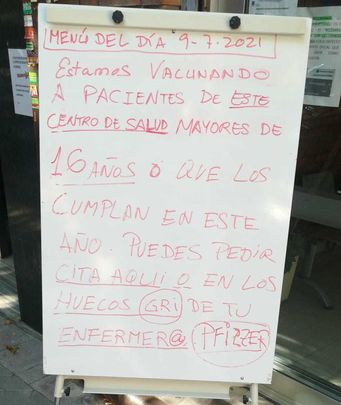 MENÚ DEL DÍA 9-7.2021
Estamos VACUNANDO
A PACIENTES DE ESTE
CENTRO DE SALUD MAYORES DE
16 AÑOS O QUE LOS
CUMPLAN EN ESTE
AÑO. PUEDES PEDIR
CITA AQUI O EN LOS
HUECOS GRI DE TU
ENFERMER@ PFIZZER